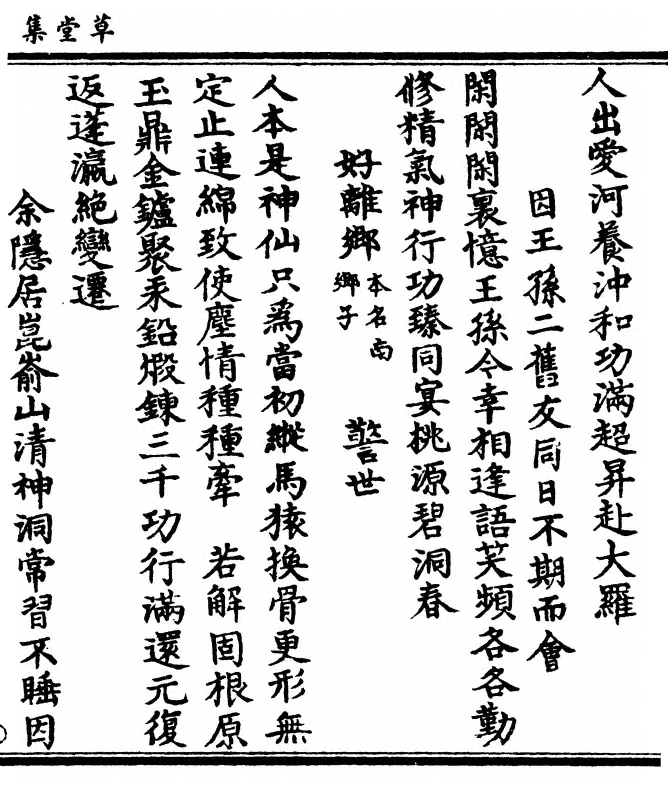 草堂集
人出愛河養沖和功滿超昇赴大羅
因王孫二舊友同日不期而會
閑閑閑裏憶王孫今幸相逢語笑頻各各勤
修精氣神行功臻同宴桃源碧洞春
好離鄉本名南鄉子 警世
人本是神仙只為當初縱馬猿換骨更形無
定止連綿致使塵情種種牽 若解固根原
玉鼎金鑪聚汞鉛煅鍊三千功行滿還元復
返蓬瀛絕變遷
余隱居崑崳山清神洞常習不睡因